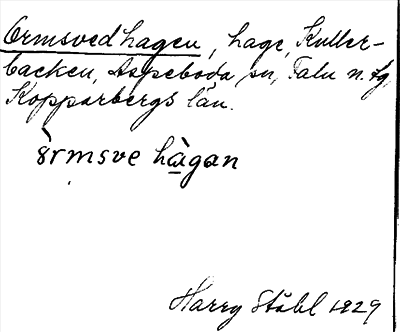 Ormsvedhagen, hage, Kuller-
backen, Aspeboda sn, Falu n. tg,
Kopparbergs län.
òrmsve hàgan
Harry Ståhl 1929